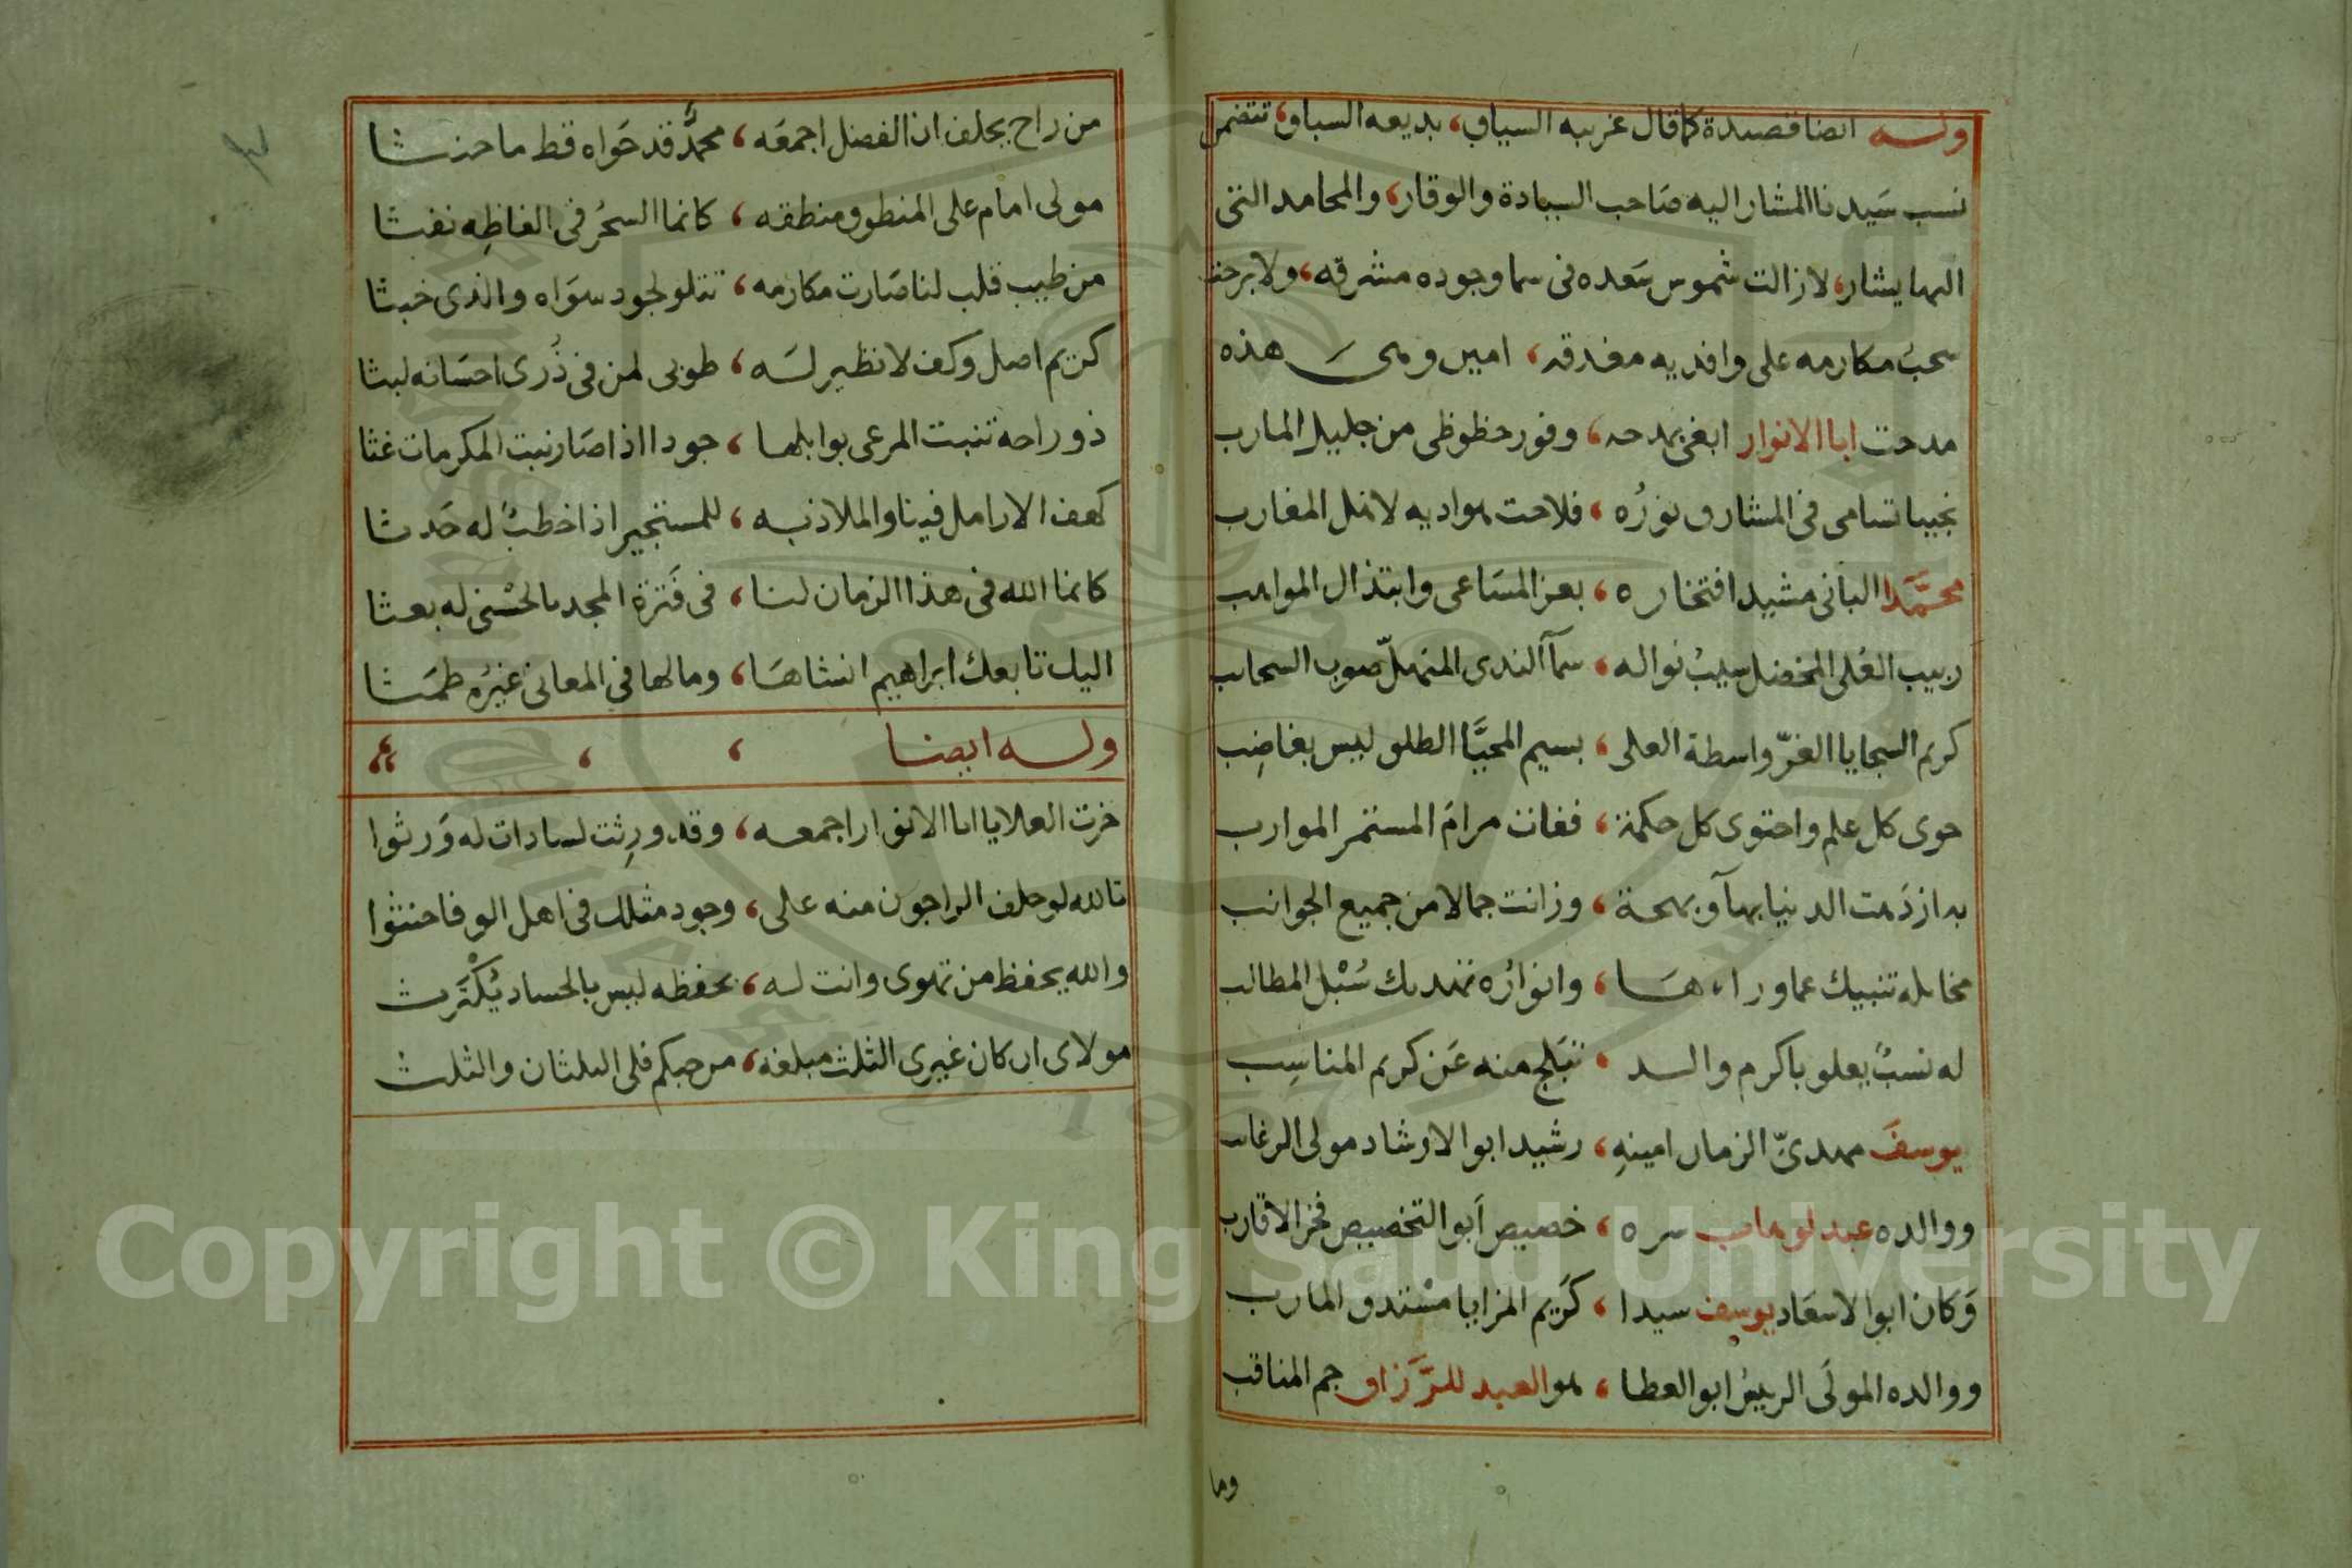 وله ايضا قصيدة كما قال غريبه السياق، بديعه السباق، تتضمن
نسب سَيدنا المشار اليه صَاحب السيادة والوقار، والمحامد التى
اليها يشار، لا زالت شموس سَعده فى سما وجوده مشرقه، ولا برحت
سحبُ مكارمه على وافديه مغدقه، امين وهى هذه
مدحت ابا الانوار ابغى بمدحه، وفور حظوظى من جليل المارب
نجيبا تسامى فى المشارق نورُه، فلاحت بواديه لاهل المغارب
محمَّدا البانى مشيد افتخاره، بعز المسَاعى وابتذال المواهب
ربيب العُلى المخضل سيبُ نواله، سمآ الندى المنهلّ صوب السحاب
كريم السجايا الغرّ واسطة العلى، بسيم المحيَّا الطلق ليس بغاضِب
حوى كل علم واحتوى كل حكمة، ففات مرامَ المستمر الموارب
به ازدَهت الدنيا بهآ وبهجة، وزانت جمالا من جميع الجوانب
مخايله تنبيك عما وراءهَا، وانوارُه تهديك سُبْل المطالب
له نسبٌ يعلو باكرم والد، تبَلج منه عَن كريم المناسِب
يوسفَ مهدىّ الزمان امينهِ، رشيد ابو الارشاد مولى الرغاب
ووالده عبد لوهاب سره، خصيص أبو التخصيص فخر الاقارب
وَكان ابو الاسعَاد يوسف سيدا، كَريم المزايا مسْتدق المارب
ووالده المولَى الرييسُ ابو العطا، هو العبد للرَّزاق جم المناقب
وما
من راح يحلف ان الفضل اجمعَه، محمدٌ قد حَواه قط ما حنثا
مولى امام على المنطوق منطقه، كانما السحرُ فى الفاظِه نفثا
من طيب قلب لنا صَارت مكارمه، تتلو لجود سوَاه والذى خبثا
كريم اصل وكف لا نظير لَه، طوبى لمن فى ذُرى احسَانه لبثا
ذو راحه تنبت المرعى بوابلها، جودا اذا صَار نبت المكرمات غثا
كهف الارامل فينا والملاذ به، للمستجير اذا خطبٌ له حَدثا
كانما الله فى هذا الزمان لنا، فى فَترة المجد بالحسْنى له بعثا
اليك تابعك ابراهيم انشاهَا، وما لها فى المعانى غيرُه طمَثا
وله ايضا
حزت العلا يا ابا الانوار اجمعه، وقد ورِثت لسادات له وَرثوا
تالله لو حلف الراجون منه على، وجود مثلك فى اهل الوفا حنثوا
والله يحفظ من تهوى وانت له، بحفظه ليس بالحساد يُكْتَرث
مولاى ان كان غيرى الثلث مبلغه، من حبكم فلى الثلثان والثلث
Copyright © King Saud University
1957